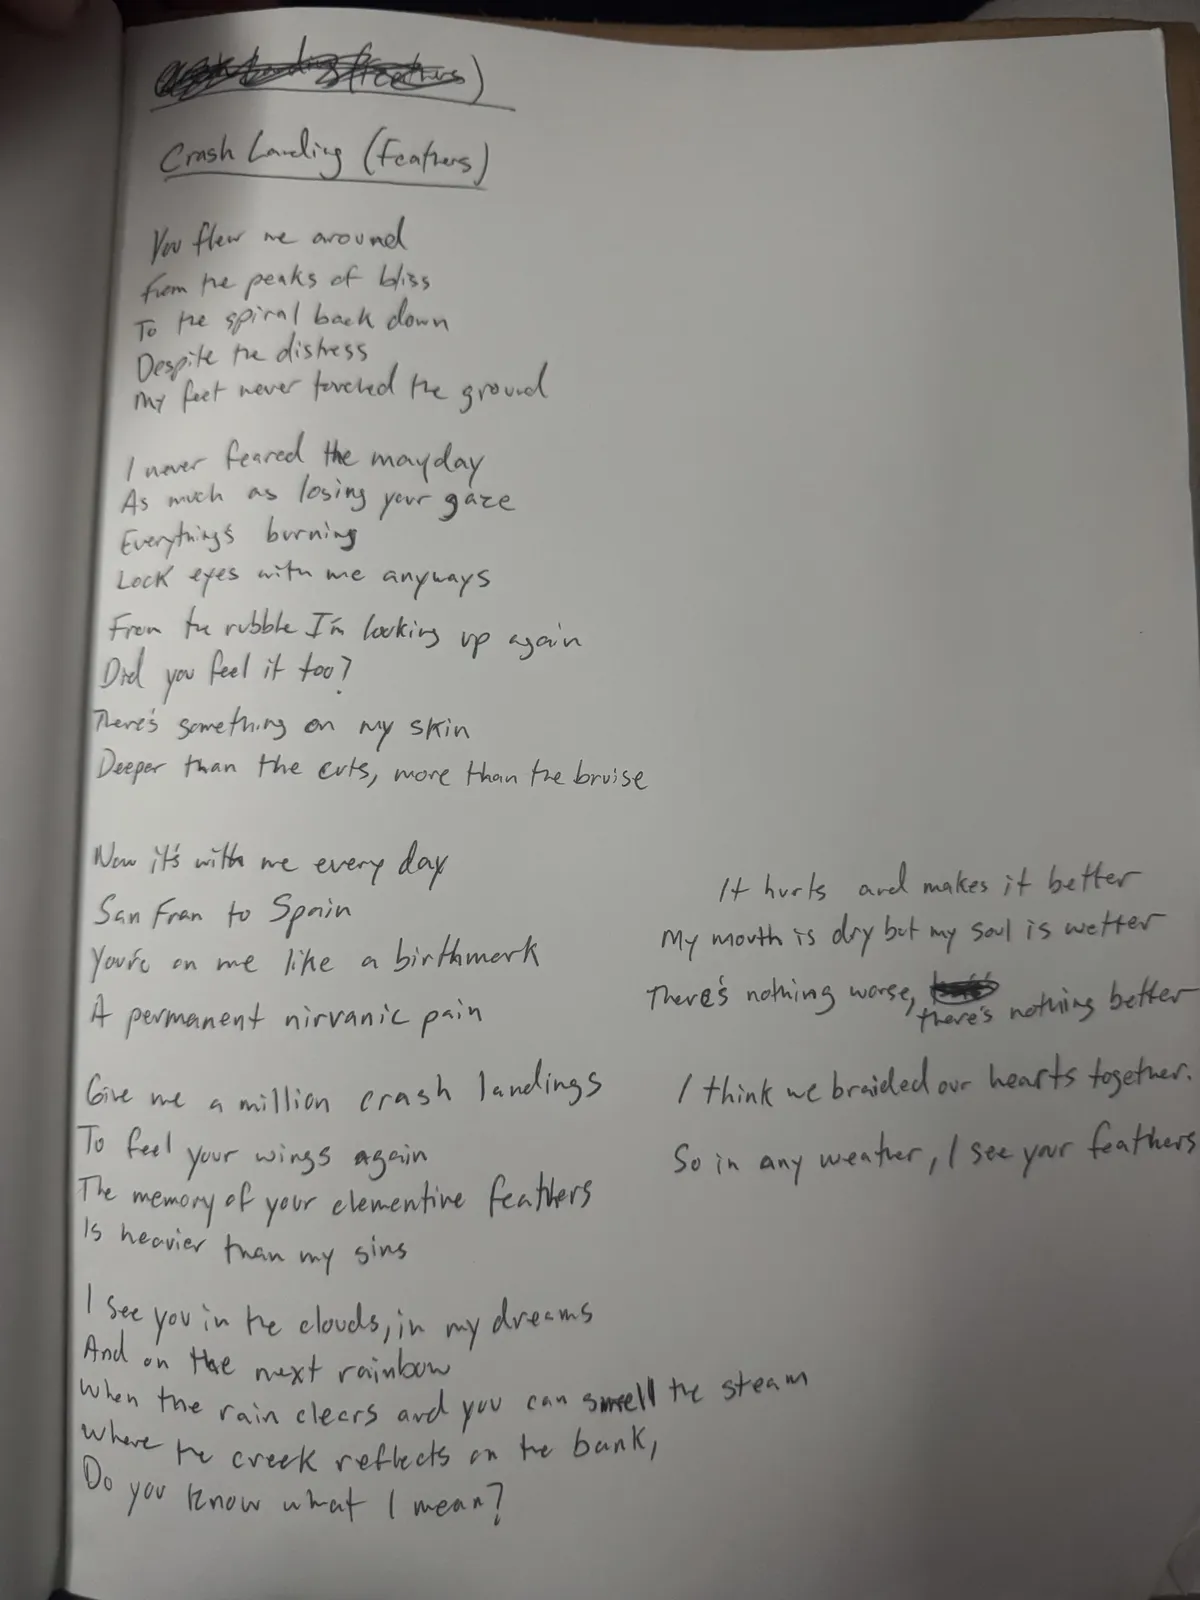 Crash Landing (Feathers)
Crash Landing (Feathers)
You flew me around
From the peaks of bliss
To the spiral back down
Despite the distress
My feet never touched the ground
I never feared the mayday
As much as losing your gaze
Everything's burning
Lock eyes with me anyways
From the rubble I'm looking up again
Did you feel it too?
There's something on my skin
Deeper than the cuts, more than the bruise
Now it's with me every day
San Fran to Spain
You're on me like a birthmark
A permanent nirvanic pain
Give me a million crash landings
To feel your wings again
The memory of your clementine feathers
Is heavier than my sins
I see you in the clouds, in my dreams
And on the next rainbow
When the rain clears and you can smell the steam
Where the creek reflects on the bank,
Do you know what I mean?
It hurts and makes it better
My mouth is dry but my soul is wetter
There's nothing worse,
there's nothing better
I think we braided our hearts together.
So in any weather, I see your feathers